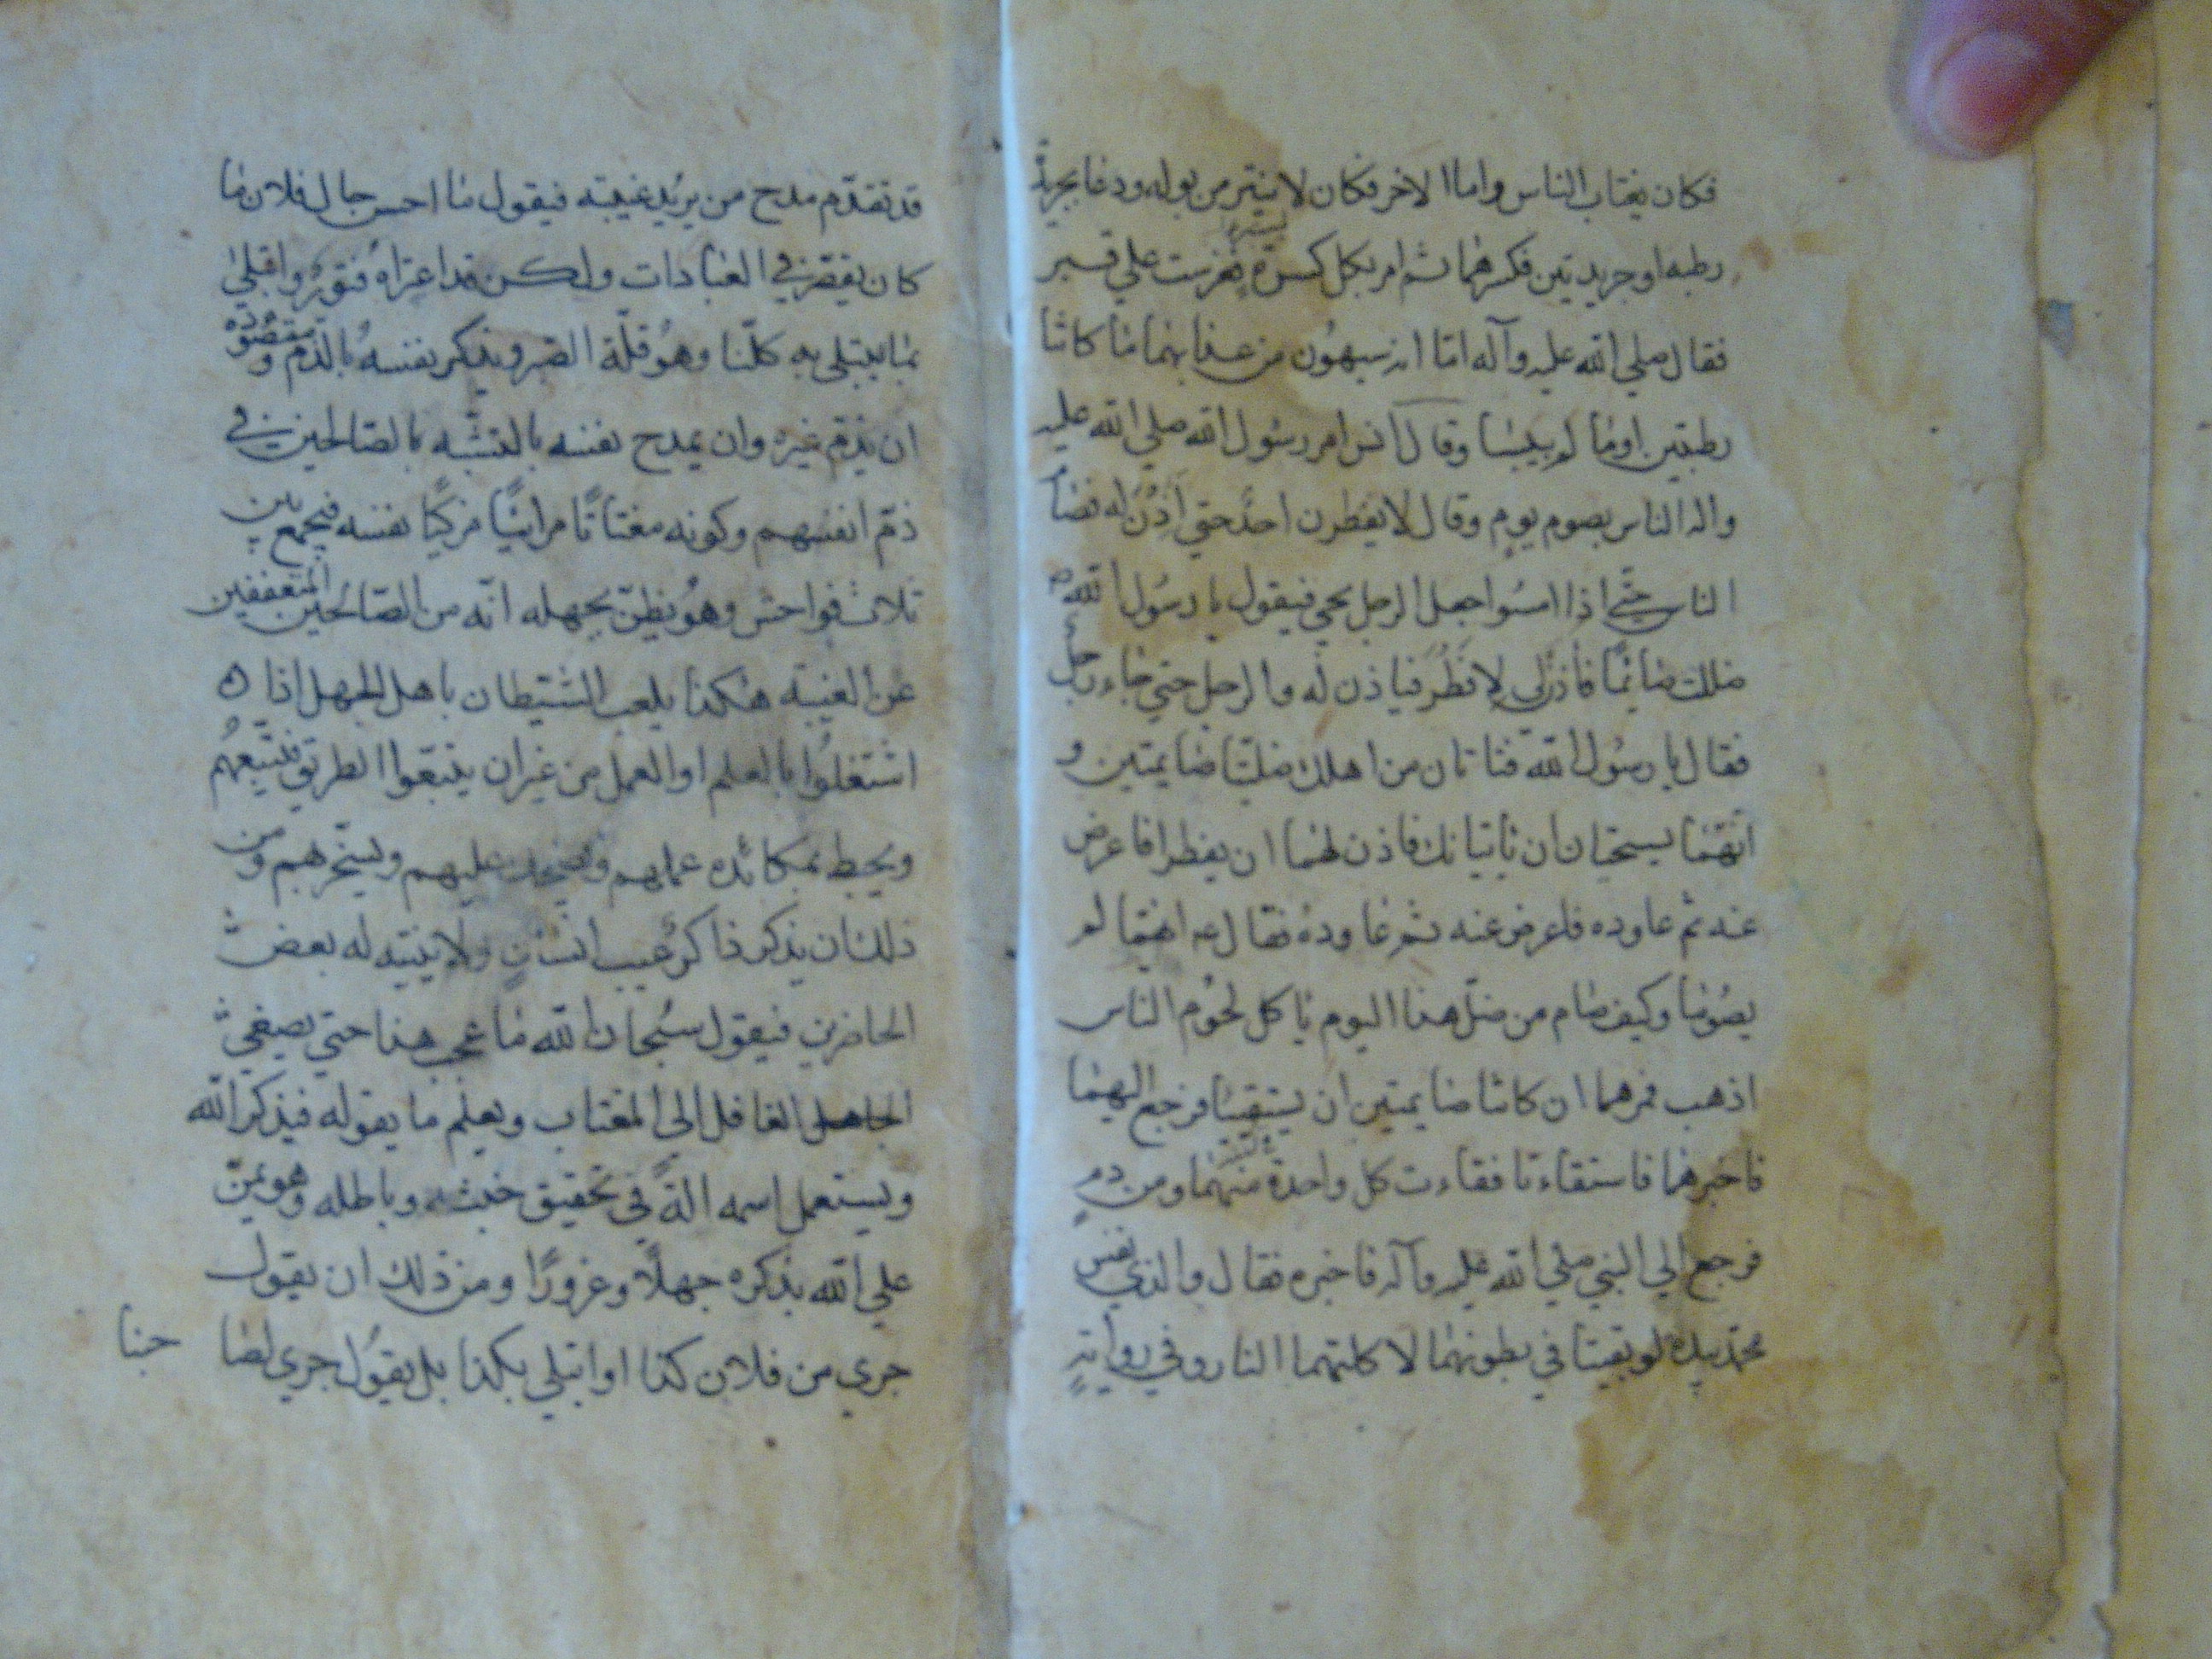 فكان يغتاب الناس واما الاخر فكان لا يستتر من بوله ودعا بجريدة
رطبه او جريدتين فكسرهما ثم امر بكل كسرة فغرست علي قبر
فقال صلي الله عليه وآله اما انه سيهون من عذابهما ما كانتا
رطبتين او ما لم ييبسا وقال انس امر رسول الله صلي الله عليه
واله الناس بصوم يوم وقال لا يفطرن احد حتي آذن له فصام
الناس حتي اذا امسوا جعل الرجل يجي فيقول يا رسول الله
ظللت صائما فاذن لي لافطر فياذن له والرجل حتي جاء رجل
فقال يا رسول الله فتاتان من اهلك ظلتا صايمتين و
انهما يستحيان ان ياتيانك فاذن لهما ان يفطرا فاعرض
عنه ثم عاوده فاعرض عنه ثم عاوده فقال انهما لم
يصوما وكيف صام من ظل هذا اليوم ياكل لحوم الناس
اذهب فمرهما ان كانتا صايمتين ان يستقيئا فرجع اليهما
فاخبرهما فاستقاءتا فقاءت كل واحدة منهما ومن دم
فرجع الي النبي صلي الله عليه وآله فاخبره فقال والذي نفس
محمد بيده لو بقيتا في بطونهما لاكلتهما النار وفي رواية
قد تقدم مدح من يريد غيبته فيقول ما احسن حال فلان ما
كان يقصر في العبادات ولكن قد اعتراه فتور وابتلي
بما يبتلي به كلنا وهو قلة الصبر ويذكر نفسه بالذم ومقصوده
ان يذم غيره وان يمدح نفسه بالتشبه بالصالحين في
ذم انفسهم وكونه مغتابا مرائيا مزكيا نفسه فيجمع بين
ثلاث فواحش وهو يظن بجهله انه من الصالحين المتعففين
عن الغيبة هكذا يلعب الشيطان باهل الجهل اذا
اشتغلوا بالعلم او العمل من غير ان يتبعوا الطريق فيتبعهم
ويحبط بمكائده عملهم ويضحك عليهم ويسخر بهم ومن
ذلك ان يذكر ذاكر عيب انسان ولا يتنبه له بعض
الحاضرين فيقول سبحان الله ما عجب هذا حتي يصغي
الجاهل الغافل الى المغتاب ويعلم ما يقوله فيذكر الله
ويستعمل اسمه الة في تحقيق خبثه وباطله وهو يمن
علي الله بذكره جهلا وغرورا ومن ذلك ان يقول
جري من فلان كذا او ابتلي بكذا بل يقول جري لصا
حبنا